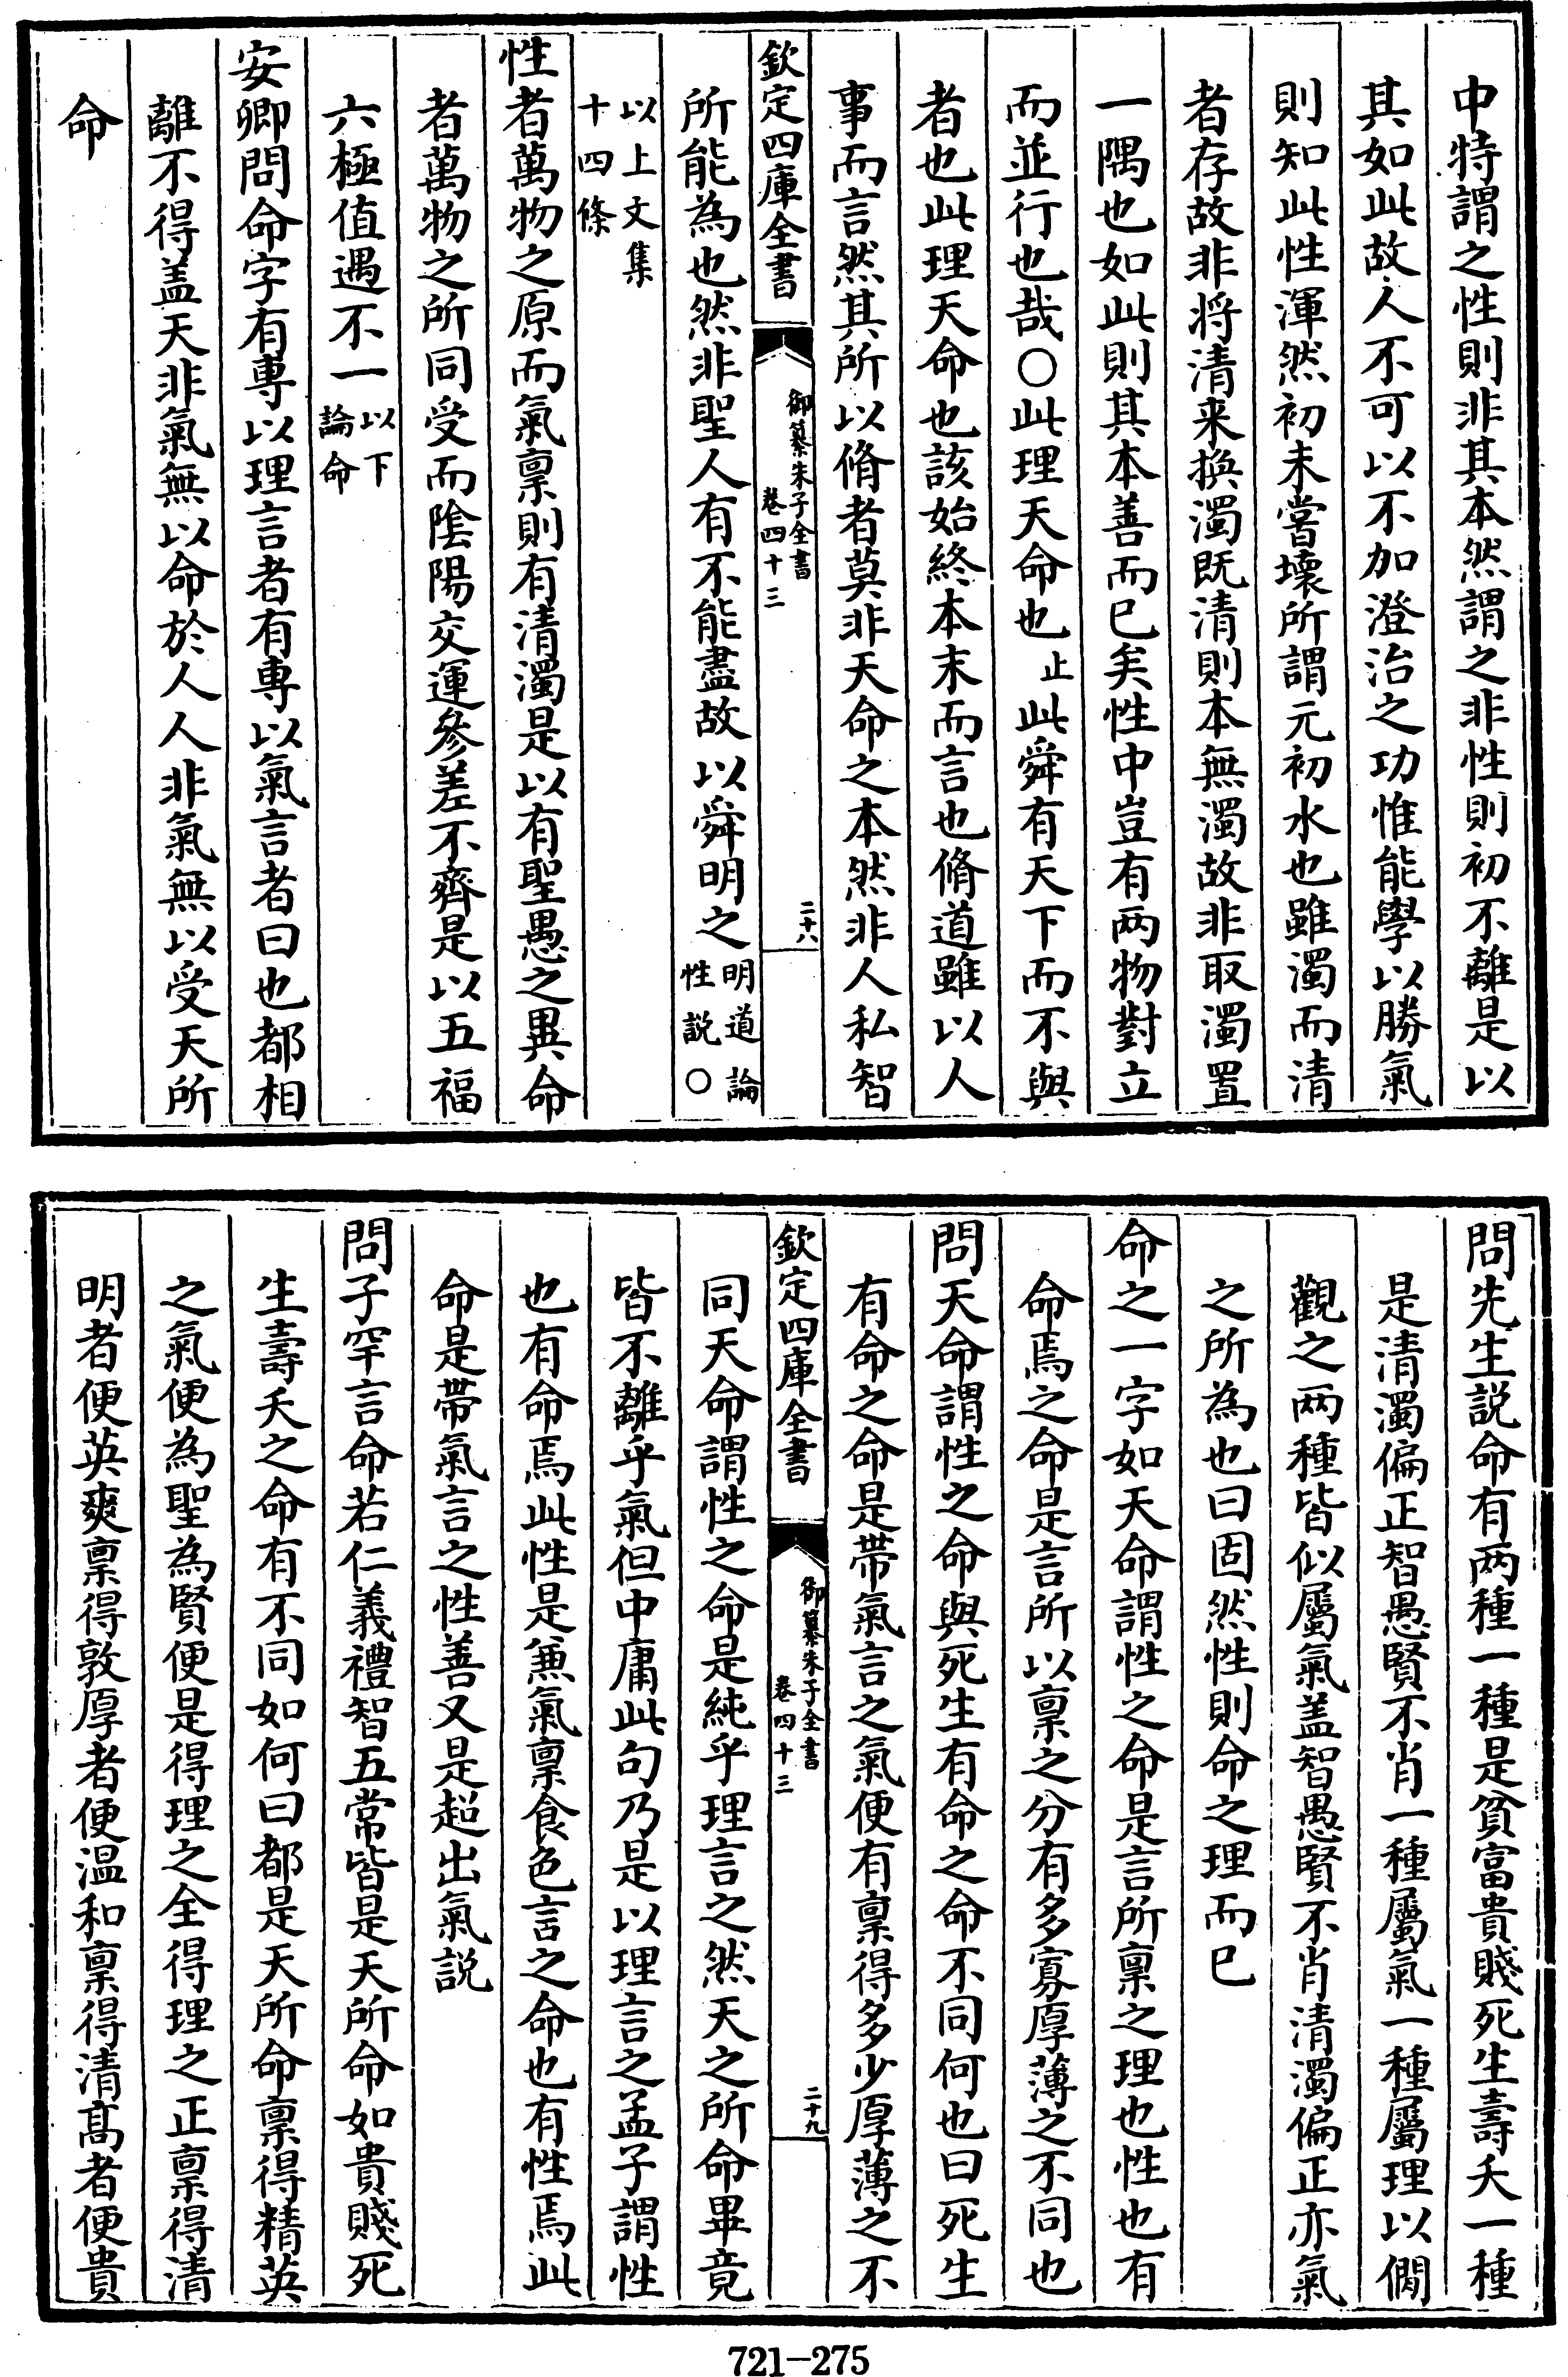 中特謂之性則非其本然謂之非性則初不離是以
其如此故人不可以不加澄治之功惟能學以勝氣
則知此性渾然初未嘗壞所謂元初水也雖濁而清
者存故非将清来換濁既清則本無濁故非取濁置
一隅也如此則其本善而已矣性中豈有两物對立
而並行也哉○此理天命也止此舜有天下而不與
者也此理天命也該始終本末而言也脩道雖以人
事而言然其所以脩者莫非天命之本然非人私智
欽定四庫全書
御纂朱子全書
卷四十三
二十八
所能為也然非聖人有不能盡故以舜明之明道論
性説○
以上文集
十四條
性者萬物之原而氣禀則有清濁是以有聖愚之異命
者萬物之所同受而陰陽交運參差不齊是以五福
六極值遇不一以下
論命
安卿問命字有專以理言者有專以氣言者曰也都相
離不得盖天非氣無以命於人人非氣無以受天所
命
問先生説命有两種一種是貧富貴賤死生壽夭一種
是清濁偏正智愚賢不肖一種屬氣一種屬理以僩
觀之两種皆似屬氣盖智愚賢不肖清濁偏正亦氣
之所為也曰固然性則命之理而已
命之一字如天命謂性之命是言所禀之理也性也有
命焉之命是言所以禀之分有多寡厚薄之不同也
問天命謂性之命與死生有命之命不同何也曰死生
有命之命是帯氣言之氣便有禀得多少厚薄之不
欽定四庫全書
御纂朱子全書
卷四十三
二十九
同天命謂性之命是純乎理言之然天之所命畢竟
皆不離乎氣但中庸此句乃是以理言之孟子謂性
也有命焉此性是兼氣禀食色言之命也有性焉此
命是帯氣言之性善又是超出氣説
問子罕言命若仁義禮智五常皆是天所命如貴賤死
生壽夭之命有不同如何曰都是天所命禀得精英
之氣便為聖為賢便是得理之全得理之正禀得清
明者便英爽禀得敦厚者便温和禀得清髙者便貴
721-275